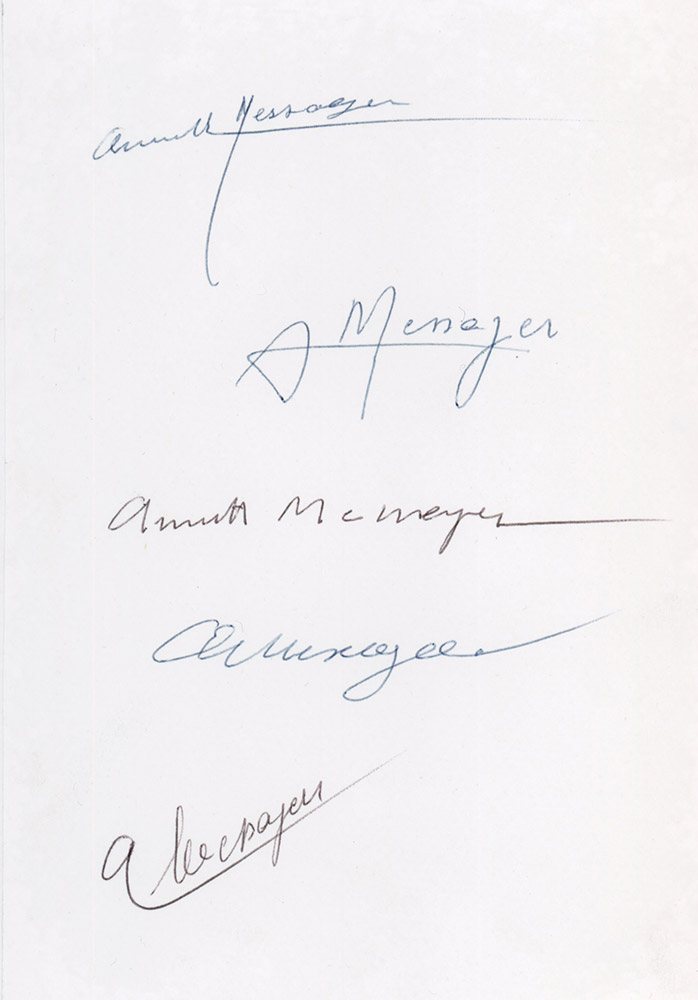 Annette Messager
A Messager
Annette Messager
A Messager
A Messager